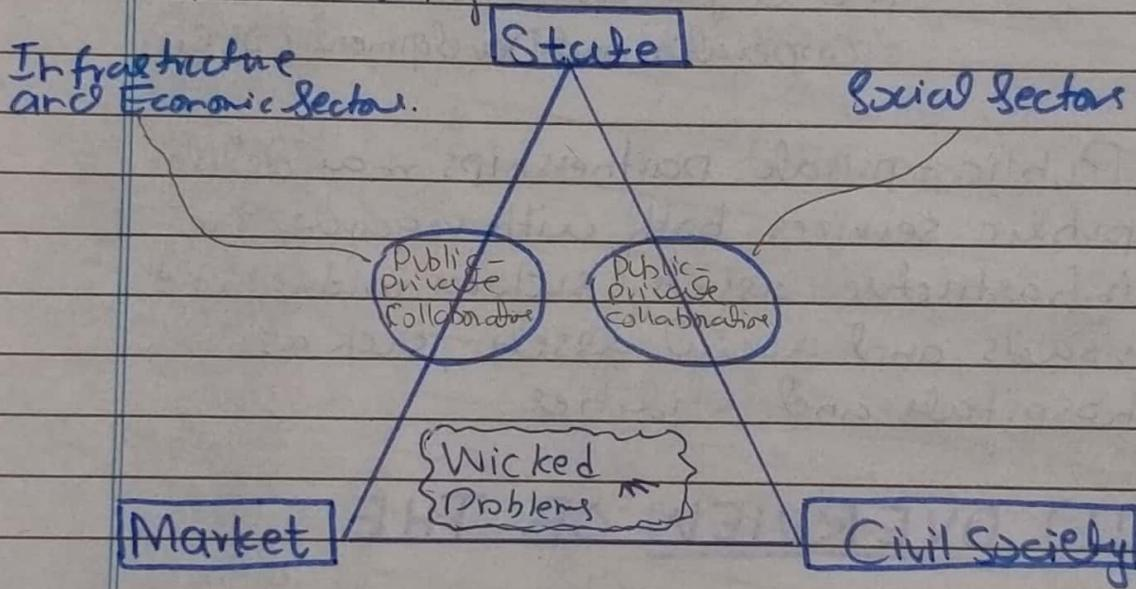 State
Infrastructure
and Economic Sector.
Social Sectors
Public-
Private
Collaborative
Public-
private
collaborative
Wicked
Problems
Market
Civil Society